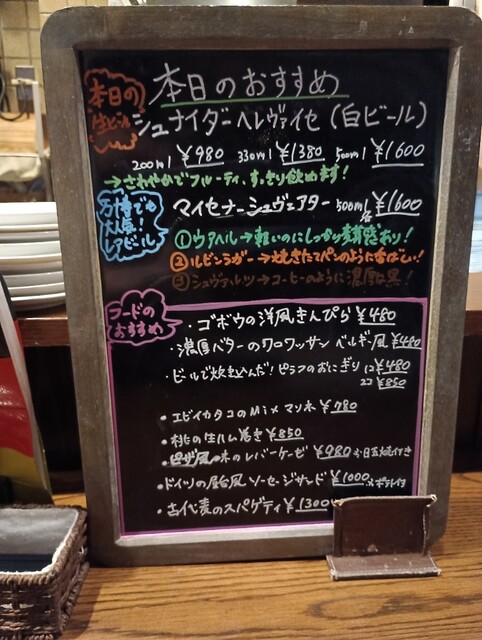 本日のおすすめ
本日の
生ビール
シュナイダーヘレヴァイセ(白ビール)
200ml ¥980 330ml ¥1380 500ml ¥1600
→さわやかでフルーティ、すっきり飲めます!
万博でも
大人気!
レアビール
マイセナーシュヴェアター 500ml 各¥1600
①ウアヘル→軽いのにしっかり麦感あり!
②ルビンラガー→焼きたてパンのように香ばしい!
③シュヴァルツ→コーヒーのように濃厚な黒!
フードの
おすすめ
・ゴボウの洋風きんぴら ¥480
・濃厚バターのクロワッサン ベルギー風 ¥480
・ビールで炊き込んだ!ピラフのおにぎり 1コ¥480
2コ¥850
・エビイカタコのMixマリネ ¥780
・桃の生ハム巻き ¥850
レバーケーゼ ¥980
・ドイツの屋台風 ソーセージサンド ¥1000 ポテト付
・古代麦のスパゲティ ¥1300